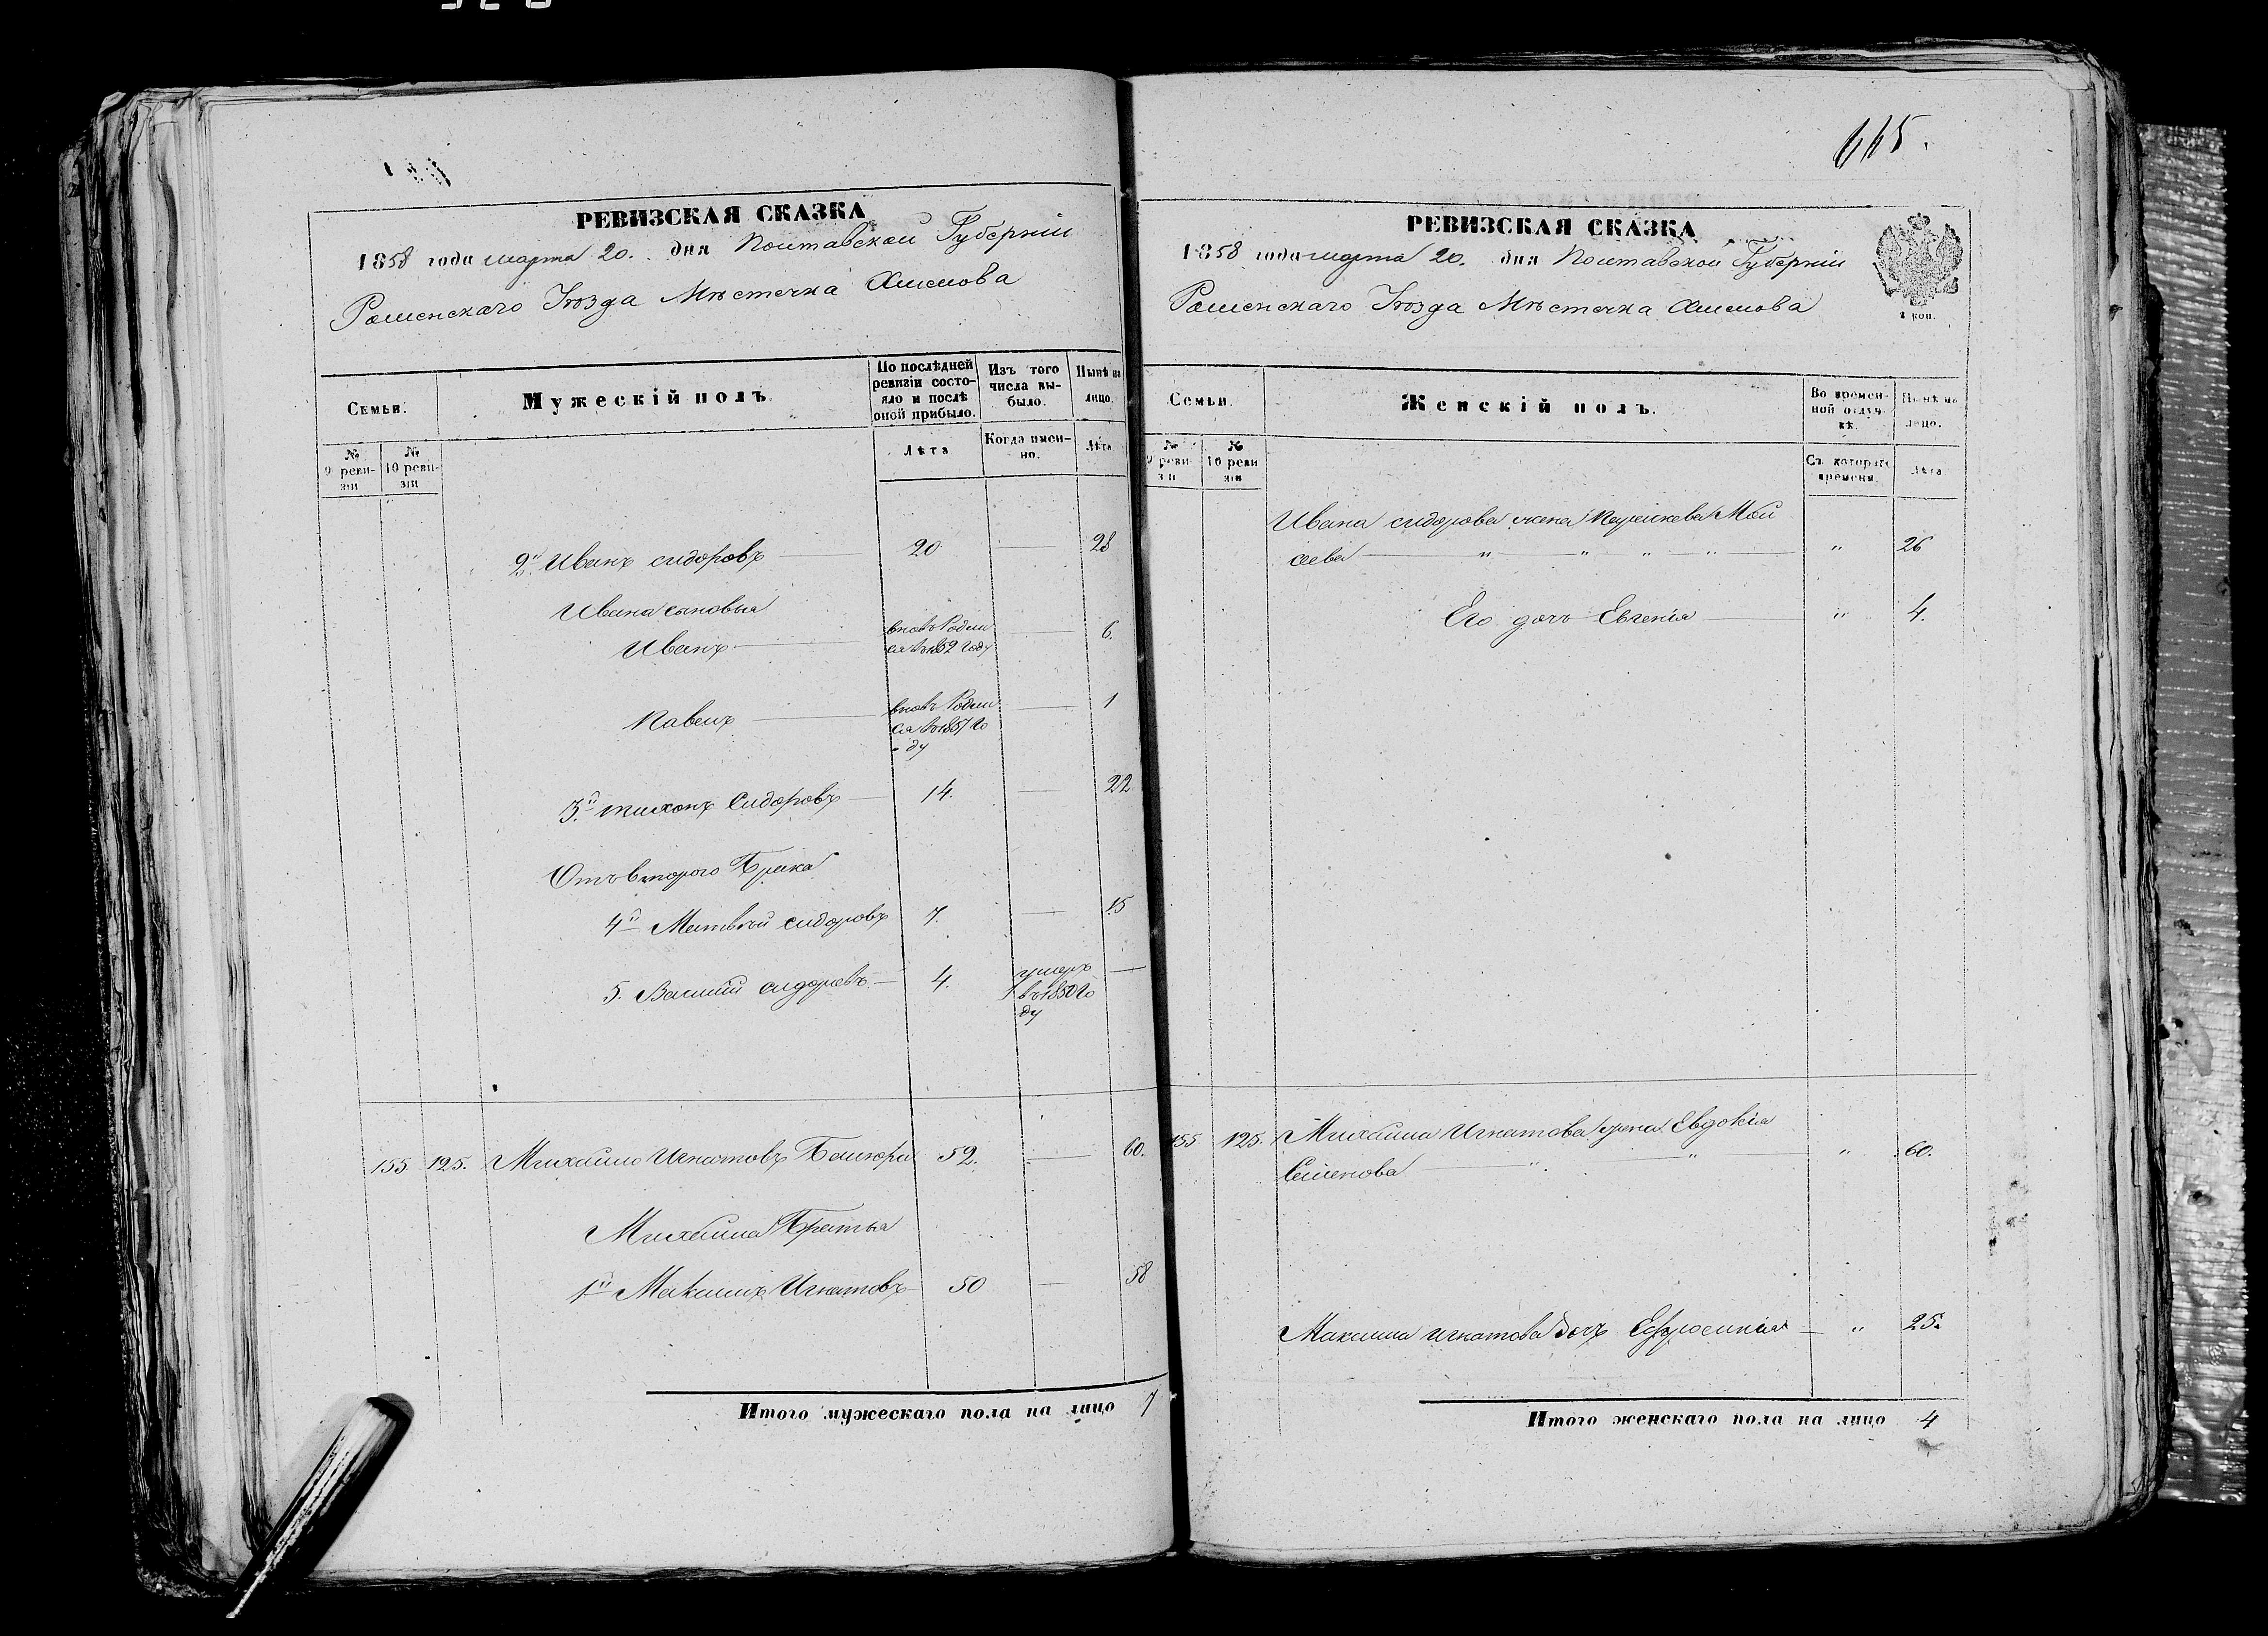 665.
РЕВИЗСКАЯ СКАЗКА
1858 года марта 20. дня Полтавской Губерніи
Роменскаго Уѣзда Мѣстечка Смѣлова
Семьи.
Мужескій полъ.
По послѣдней ревизіи состояло и послѣ оной прибыло.
Изъ того числа выбыло.
Нынѣ на лицо.
№ 9 ревизіи
№ 10 ревизіи
Лѣта
Когда именно.
Лѣта
2й Иванъ Сидоровъ 20 28
Ивана сыновья
Иванъ вновь Родился въ 1852 году 6.
Павелъ вновь Родился въ 1857 году 1
3й Тихонъ Сидоровъ 14. 22
Отъ второго Брака
4й Матвѣй Сидоровъ 7. 15
5. Василій Сидоровъ 4. умеръ въ 1850 году
155 125. Михайло Игнатовъ 52. 60.
Михайла Братья
1й Максимъ Игнатовъ 50 58
Итого мужескаго пола на лицо 7
РЕВИЗСКАЯ СКАЗКА
1858 года марта 20. дня Полтавской Губерніи
Роменскаго Уѣзда Мѣстечка Смѣлова
2 коп.
Семьи.
Женскій полъ.
Во временной отлучкѣ.
Нынѣ на лицо.
№ 9 ревизіи
№ 10 ревизіи
Съ котораго времени.
Лѣта
Ивана Сидорова жена Параскева Мой
сеева " " " " " 26
Его дочь Евгенія " 4.
155 125. Михайла Игнатова жена Евдокія
Семенова " " " 60.
Максима Игнатова дочь Ефросинія " 25.
Итого женскаго пола на лицо 4